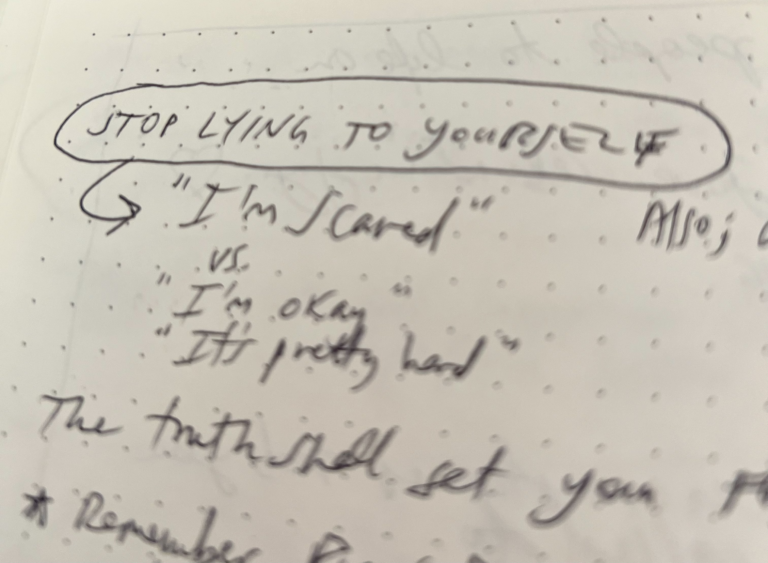 STOP LYING TO YOURSELF
"I'm scared"
Also;
vs.
"I'm okay"
"It's pretty hard"
The truth shall set you
* Remember